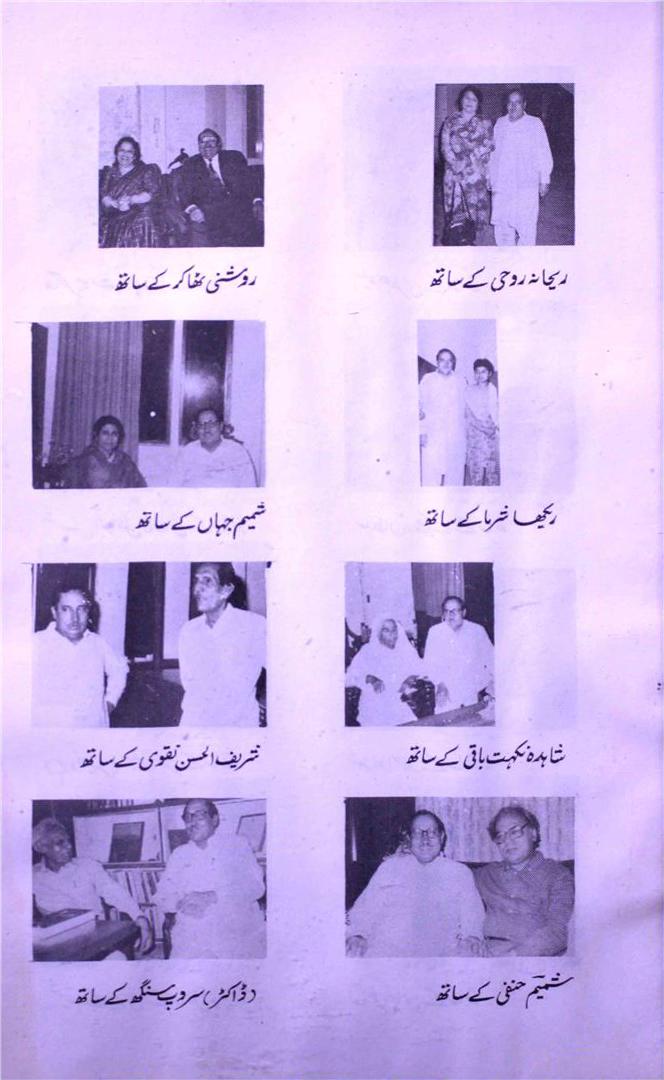 ریحانہ روحی کے ساتھ
روشنی ٹھاکر کے ساتھ
ریکھا شرما کے ساتھ
شمیم جہاں کے ساتھ
شاہدہ نکہت باقی کے ساتھ
شریف الحسن نقوی کے ساتھ
شمیم حنفی کے ساتھ
(ڈاکٹر) سروپ سنگھ کے ساتھ